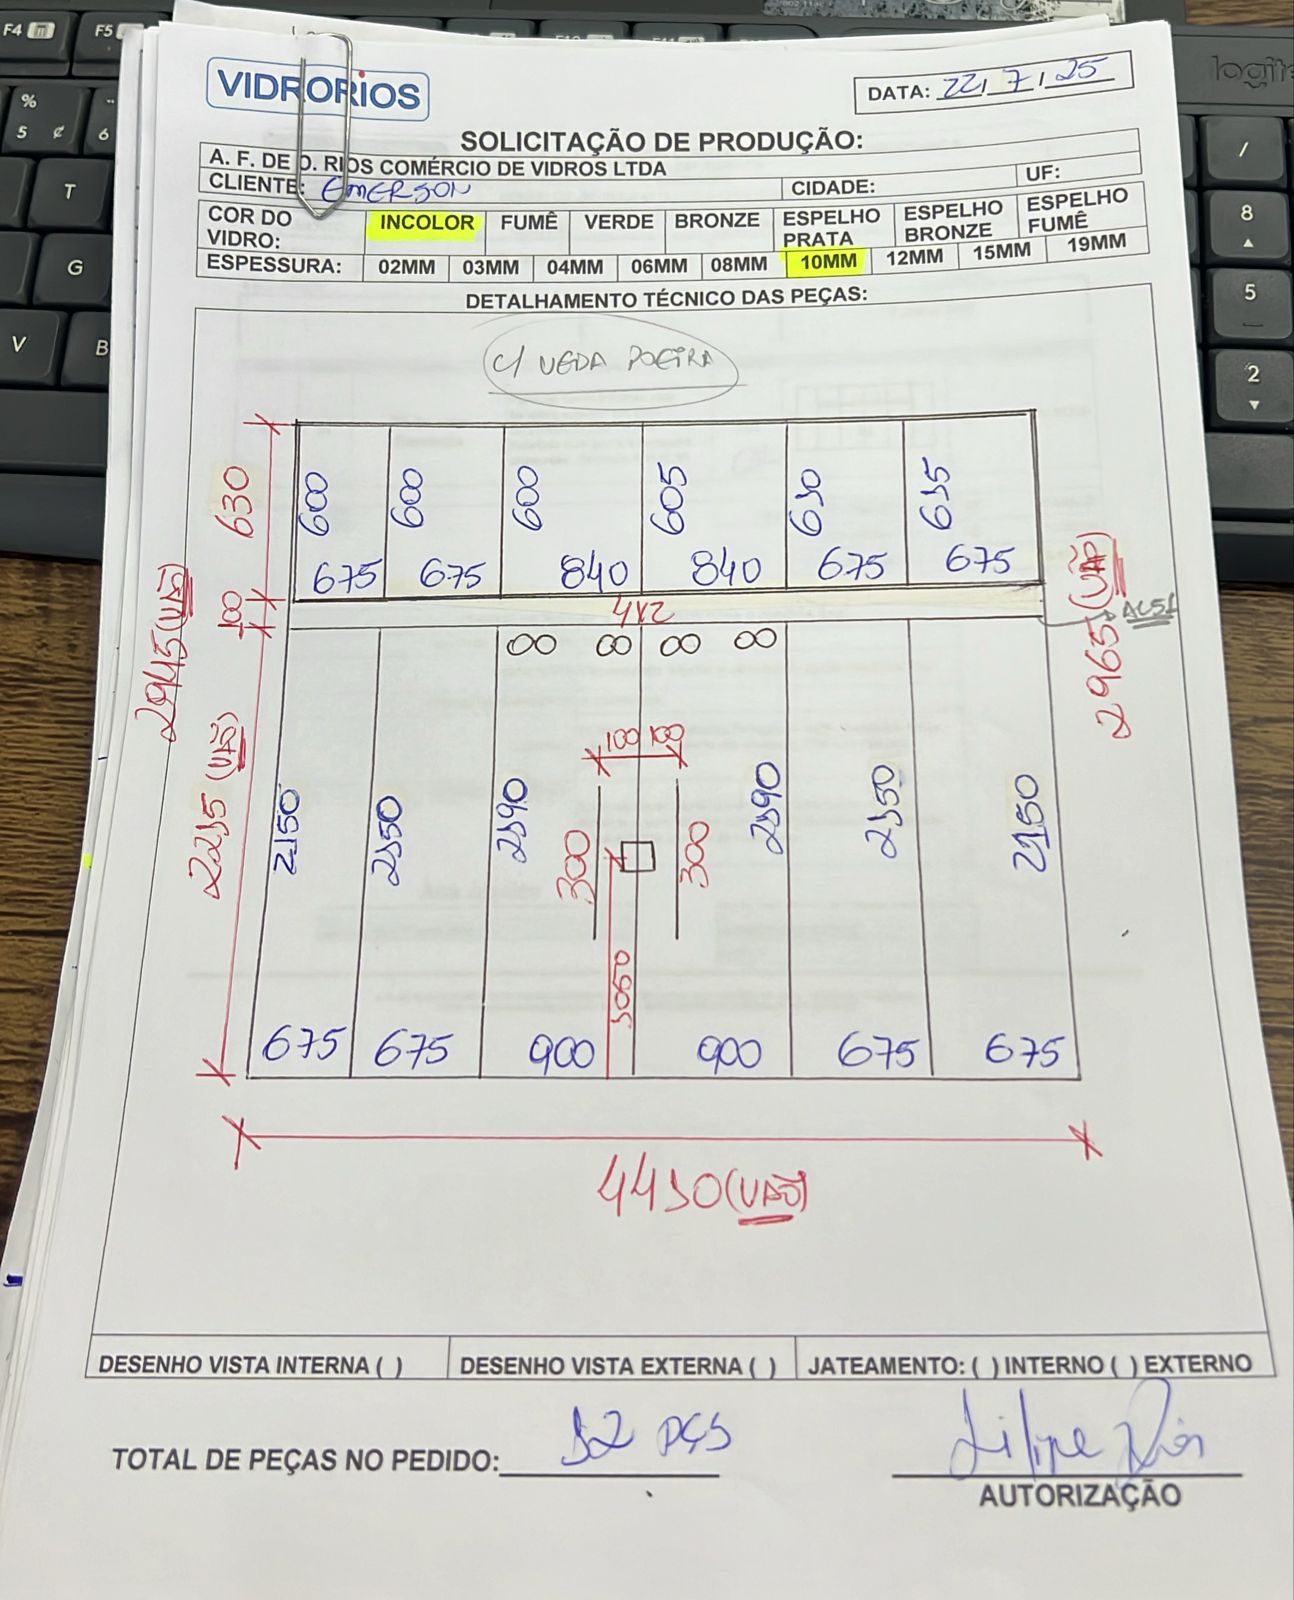 F4 F5
% 5 ¢ 6
T
G
V B
logit
/
8
5
2
VIDRORIOS
DATA: 22/7/25
SOLICITAÇÃO DE PRODUÇÃO:
A. F. DE O. RIOS COMÉRCIO DE VIDROS LTDA
CLIENTE: EMERSON CIDADE: UF:
COR DO VIDRO: INCOLOR FUMÊ VERDE BRONZE ESPELHO PRATA ESPELHO BRONZE ESPELHO FUMÊ
ESPESSURA: 02MM 03MM 04MM 06MM 08MM 10MM 12MM 15MM 19MM
DETALHAMENTO TÉCNICO DAS PEÇAS:
C/ VEDA POEIRA
630 600 600 600 605 610 615
675 675 840 840 675 675
2945 (VÃO) 100 4X2 2965 (VÃO)
100 100
2215 (VÃO) 2150 2150 2190 2190 2150 2150
300 300
1050
675 675 900 900 675 675
4410 (VÃO)
DESENHO VISTA INTERNA ( ) DESENHO VISTA EXTERNA ( ) JATEAMENTO: ( ) INTERNO ( ) EXTERNO
TOTAL DE PEÇAS NO PEDIDO: 12 PÇS
Filipe Rios
AUTORIZAÇÃO